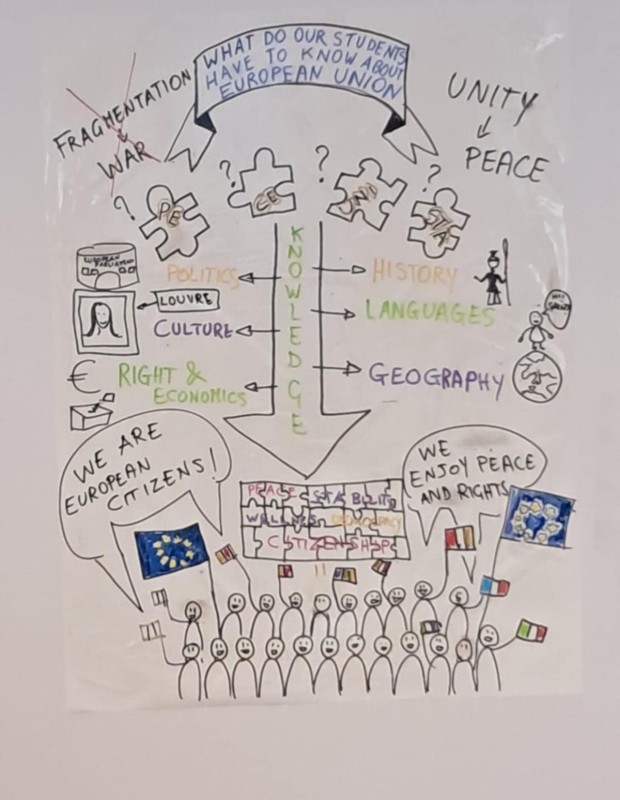 WHAT DO OUR STUDENTS
HAVE TO KNOW ABOUT
EUROPEAN UNION
FRAGMENTATION
WAR
UNITY
PEACE
?
?
?
?
?
PE
CE
UNI
STA
KNOWLEDGE
EUROPEAN PARLIAMENT
POLITICS
LOUVRE
CULTURE
€
RIGHT &
ECONOMICS
HISTORY
LANGUAGES
GEOGRAPHY
WE ARE
EUROPEAN
CITIZENS!
WE
ENJOY PEACE
AND RIGHTS
PEACE STABILITY
WELLNESS DEMOCRACY
CITIZENSHIP